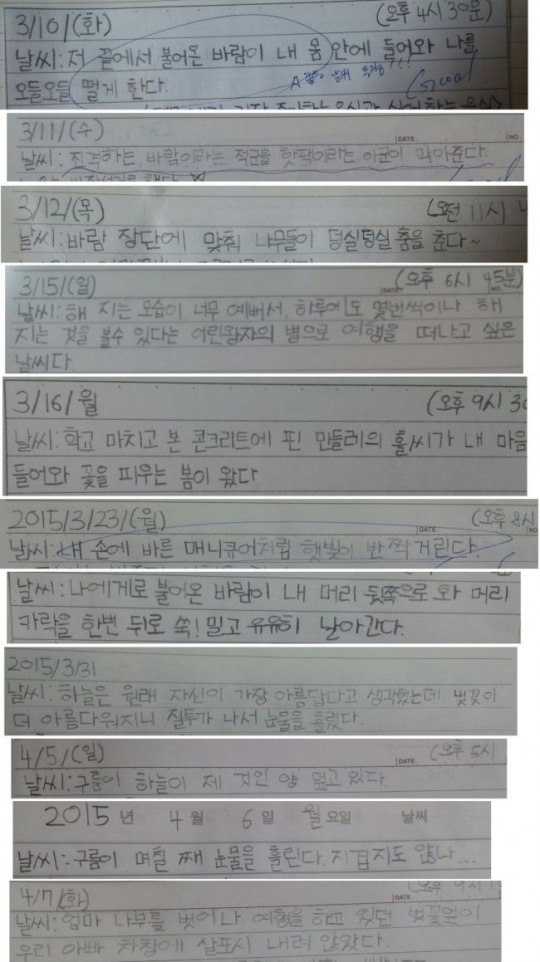 3/10/(화) (오후 4시 30분)
날씨: 저 끝에서 불어온 바람이 내 몸 안에 들어와 나를
오들오들 떨게 한다.
Good
3/11/(수)
DATE NO
날씨: 진격하는 바람이라는 적군을 핫팩이라는 아군이 막아준다.
3/12/(목) (오전 11시
날씨: 바람 장단에 맞춰 나무들이 덩실덩실 춤을 춘다~
3/15/(일) DATE (오후 6시 45분)
날씨: 해 지는 모습이 너무 예뻐서, 하루에도 몇번씩이나 해
지는 것을 볼수 있다는 어린왕자의 별으로 여행을 떠나고 싶은
날씨다
3/16/월 (오후 9시 30
날씨: 학교 마치고 본 콘크리트에 핀 민들레의 홀씨가 내 마음
들어와 꽃을 피우는 봄이 왔다
2015/3/23/(월) DATE (오후 8시 NO
날씨: 내 손에 바른 매니큐어처럼 햇빛이 반짝거린다.
날씨: 나에게로 불어온 바람이 내 머리 뒷쪽으로 와 머리
카락을 한번 뒤로 쑥! 밀고 유유히 날아간다.
2015/3/31
날씨: 하늘은 원래 자신이 가장 아름답다고 생각했는데 벚꽃이
더 아름다워지니 질투가 나서 눈물을 흘렸다.
4/5/(일) DATE (오후 5시
날씨: 구름이 하늘이 제 것인 양 덮고 있다.
2015 년 4 월 6 일 월 요일 날씨
날씨: 구름이 며칠 째 눈물을 흘린다. 지겹지도 않나...
4/7/(화) DATE
날씨: 엄마 나무를 벗어나 여행을 하고 있던 벚꽃잎이
우리 아빠 차창에 살포시 내려 앉았다.